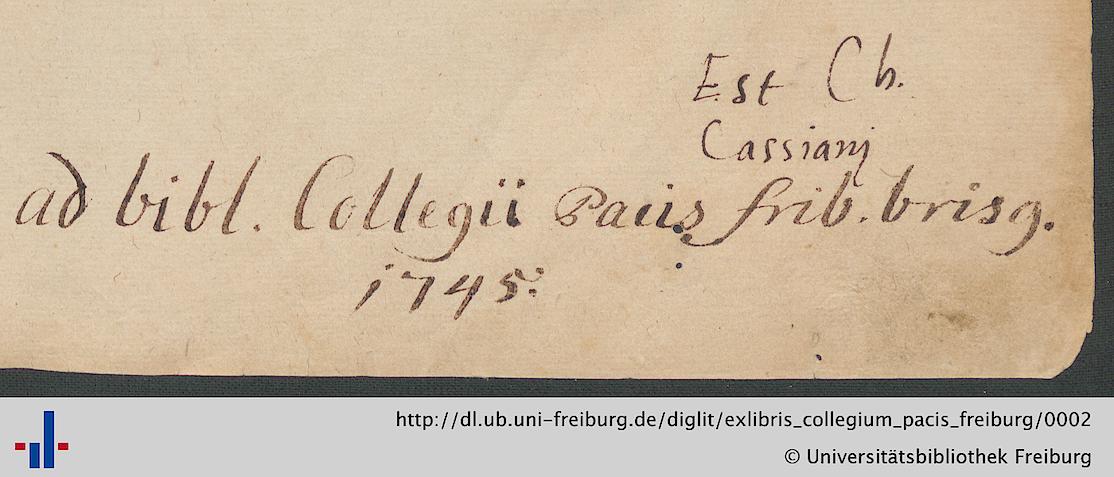 Est Ch.
Cassianj
ad bibl. Collegii Pacis frib. brisg.
1745:
http://dl.ub.uni-freiburg.de/diglit/exlibris_collegium_pacis_freiburg/0002
© Universitätsbibliothek Freiburg